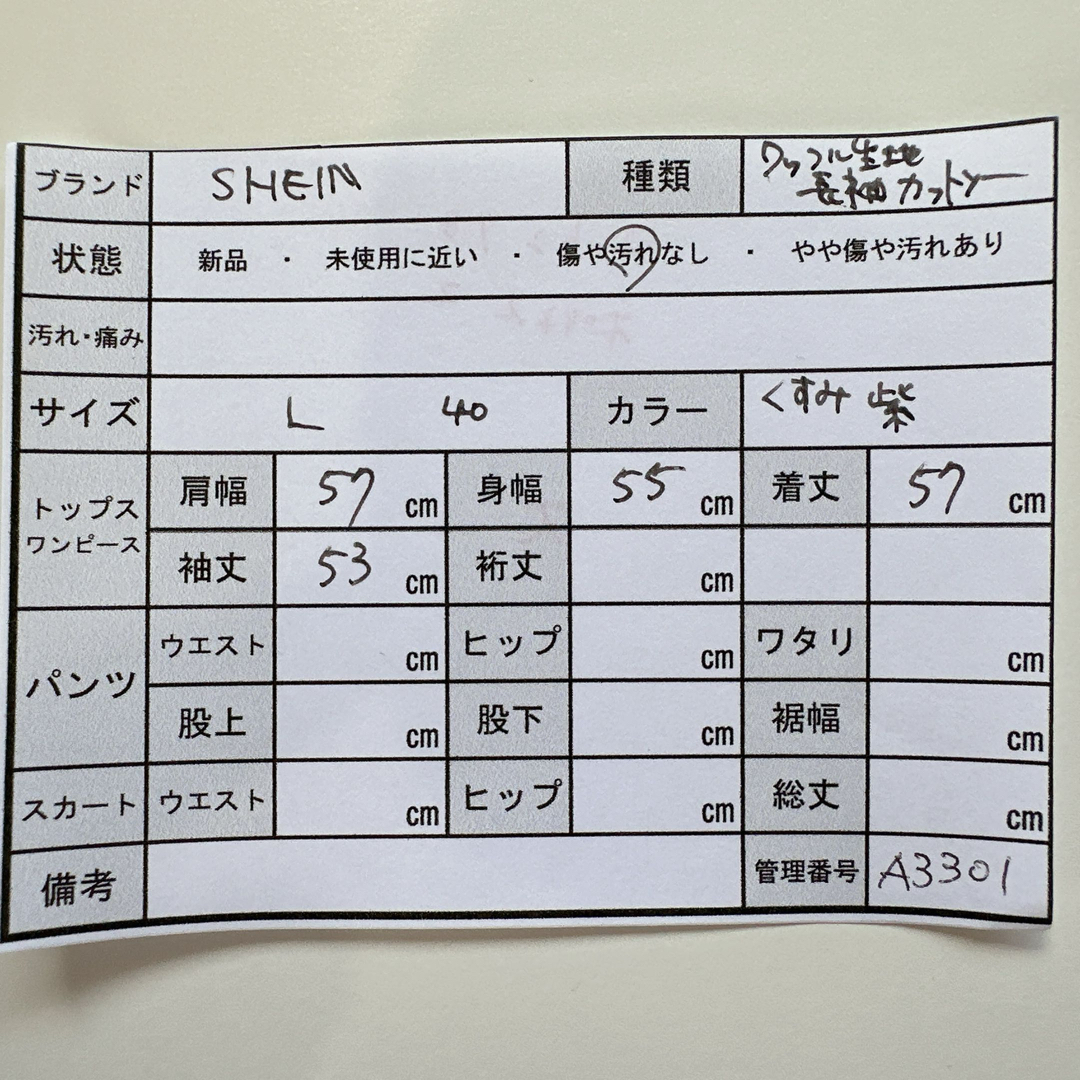 ブランド SHEIN 種類 ワッフル生地
長袖カットソー
状態 新品 ・ 未使用に近い ・ 傷や汚れなし ・ やや傷や汚れあり
汚れ・痛み
サイズ L 40 カラー くすみ紫
トップス
ワンピース
肩幅 57 cm 身幅 55 cm 着丈 57 cm
袖丈 53 cm 裄丈 cm
パンツ
ウエスト cm ヒップ cm ワタリ cm
股上 cm 股下 cm 裾幅 cm
スカート ウエスト cm ヒップ cm 総丈 cm
備考 管理番号 A3301